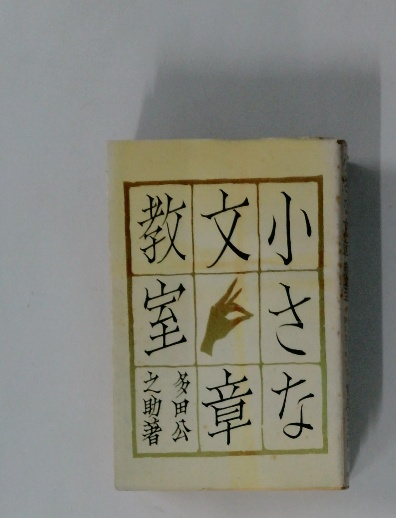 小さな
文章
教室
多田公
之助著